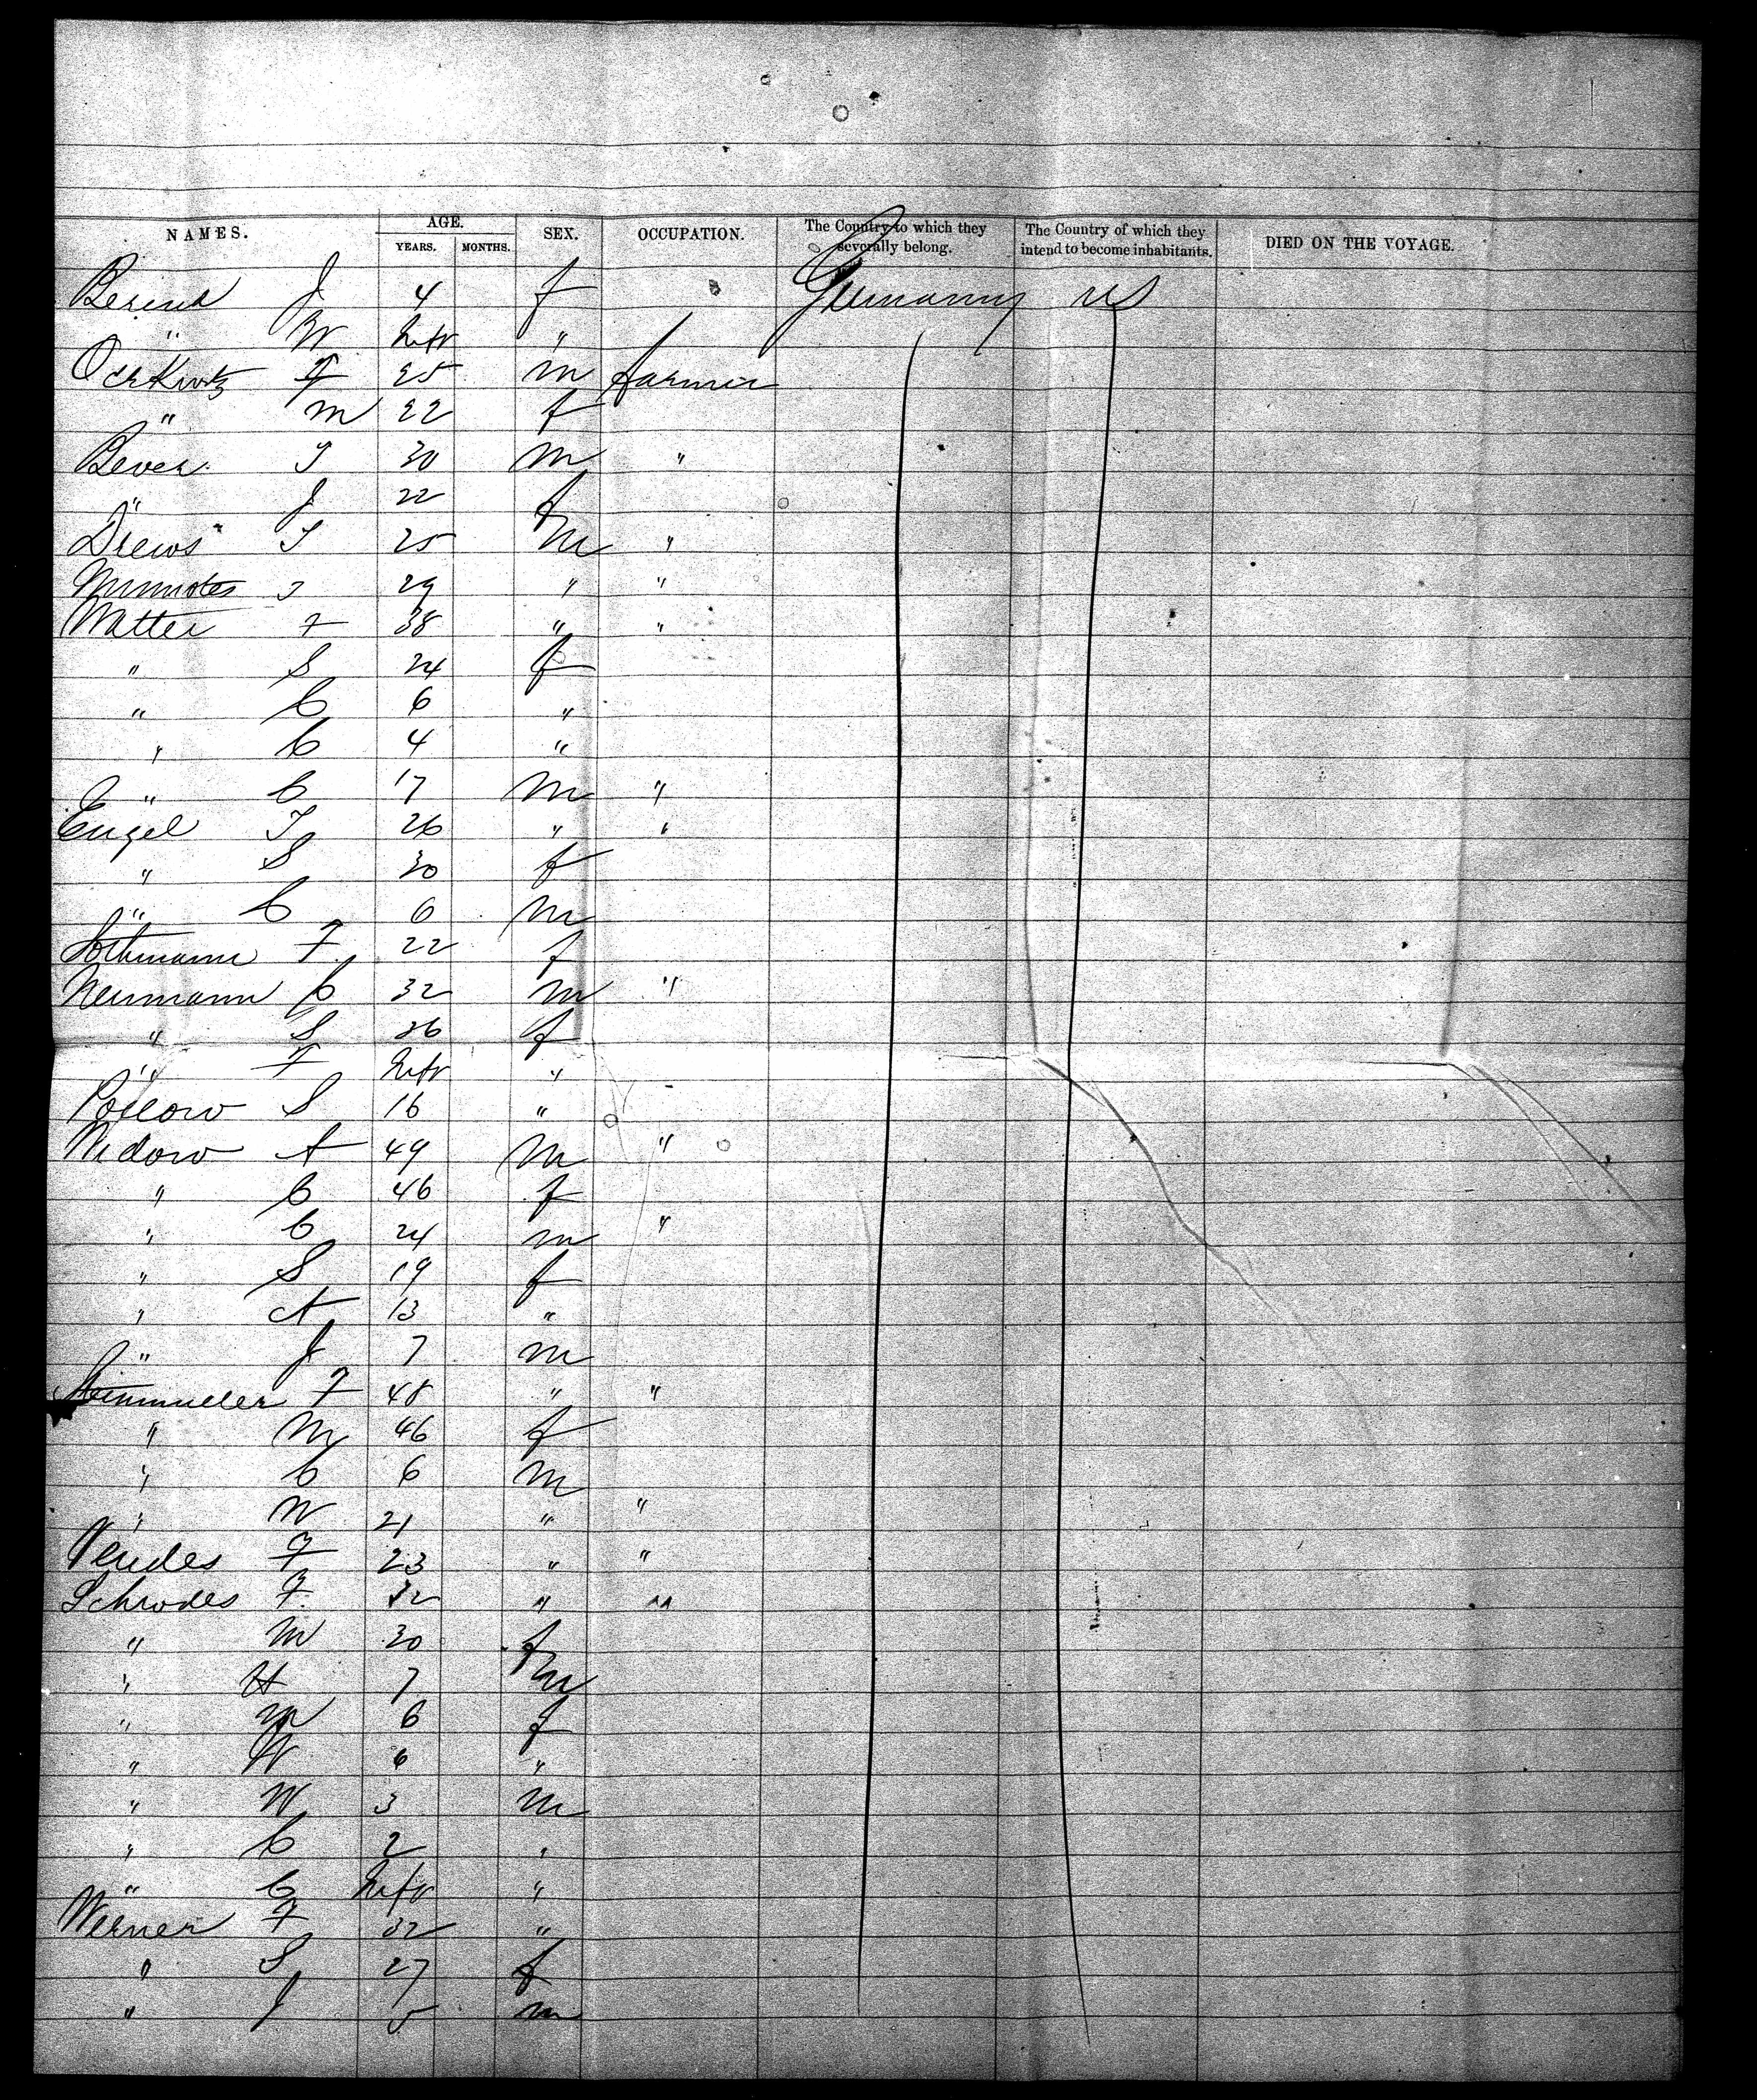 NAMES. AGE. YEARS. MONTHS. SEX. OCCUPATION. The Country to which they severally belong. The Country of which they intend to become inhabitants. DIED ON THE VOYAGE.
Berind J 4 f Germany US
" W Infr "
F 25 m farmer
" M 22 f
Bever J 30 m "
" J 22 f
Drews J 25 m "
J 29 " "
Watter F 38 " "
" S 24 f
" C 6 "
" C 4 "
" C 17 m "
Engel J 26 " "
" S 30 f
" C 6 m
F 22 f
Neumann C 32 m "
" S 36 f
" F Infr "
S 16 "
Widow A 49 m "
" C 46 f
" C 24 m "
" S 19 f
" A 13 "
" J 7 m
Steinmueller F 48 " "
" M 46 f
" C 6 m
" W 21 " "
F 23 " "
Schrodes F. 32 " "
" M 30 f
" H 7 m
" M 6 f
" W 6 "
" W 3 m
" C 2 "
" C Infr "
Werner F 32 "
" S 27 f
" J 5 m